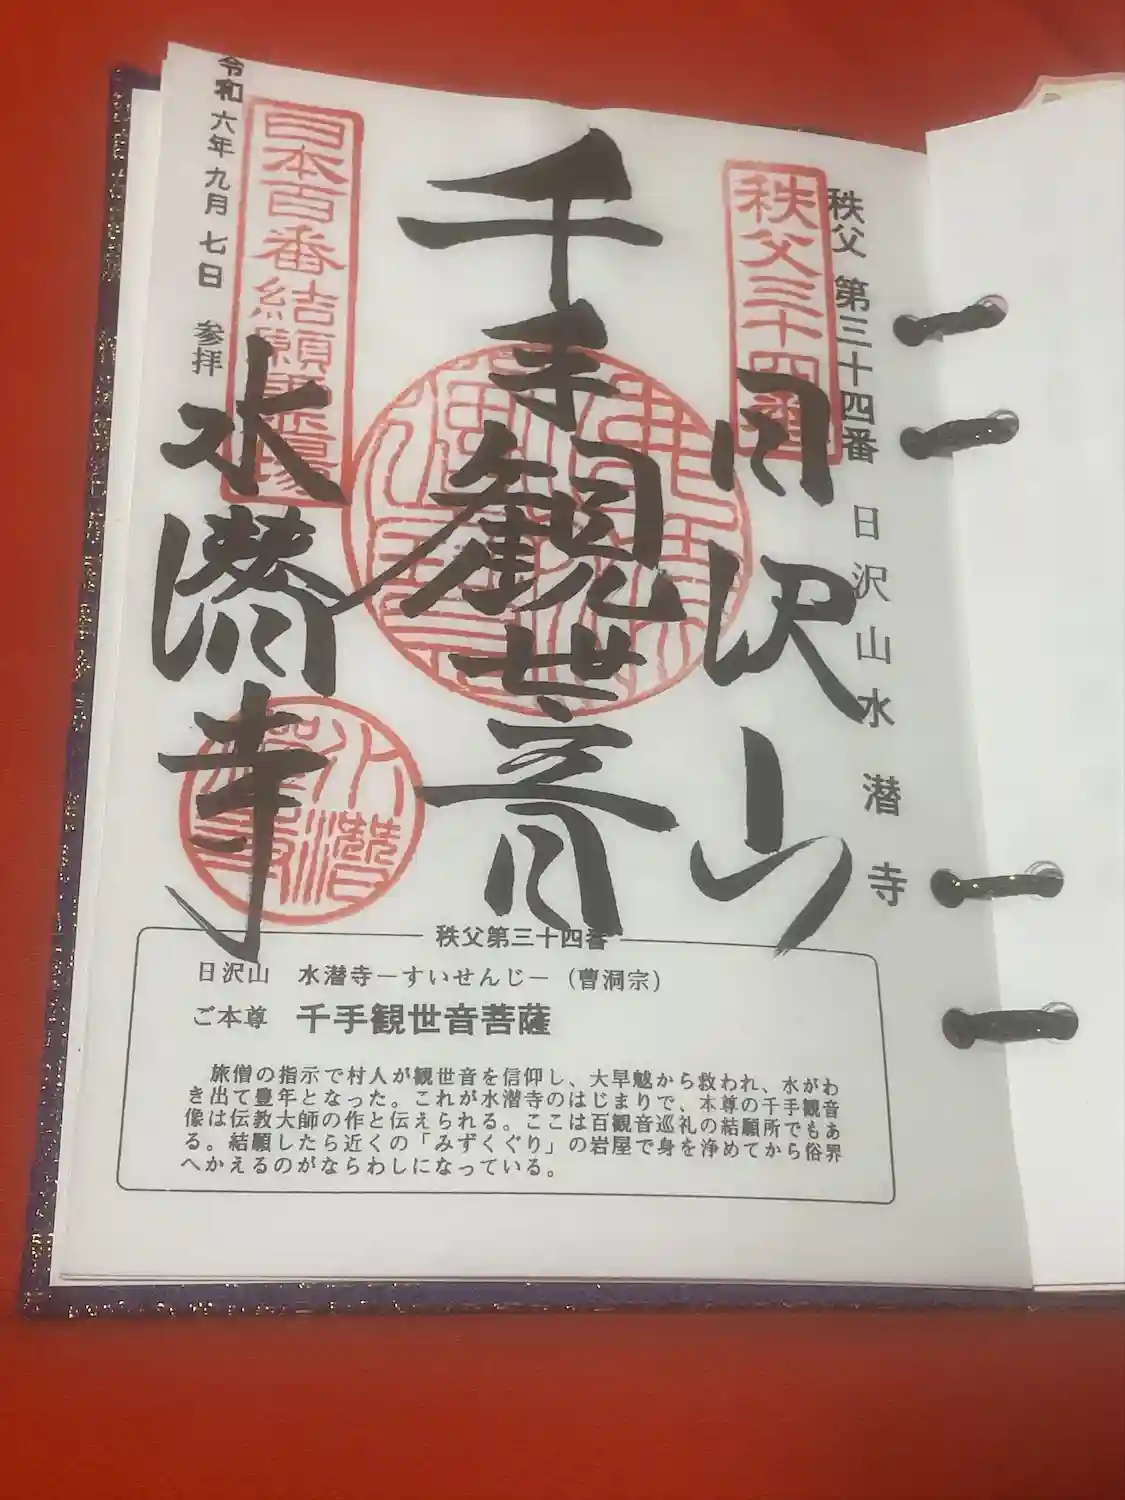 秩父 第三十四番 日沢山水潜寺
秩父三十四番
日沢山
千手観世音
日本百番結願
水潜寺
令和六年九月七日 参拝
秩父第三十四番
日沢山 水潜寺－すいせんじ－（曹洞宗）
ご本尊 千手観世音菩薩
旅僧の指示で村人が観世音を信仰し、大旱魃から救われ、水がわ
き出て豊年となった。これが水潜寺のはじまりで、本尊の千手観音
像は伝教大師の作と伝えられる。ここは百観音巡礼の結願所でもあ
る。結願したら近くの「みずくぐり」の岩屋で身を浄めてから俗界
へかえるのがならわしになっている。